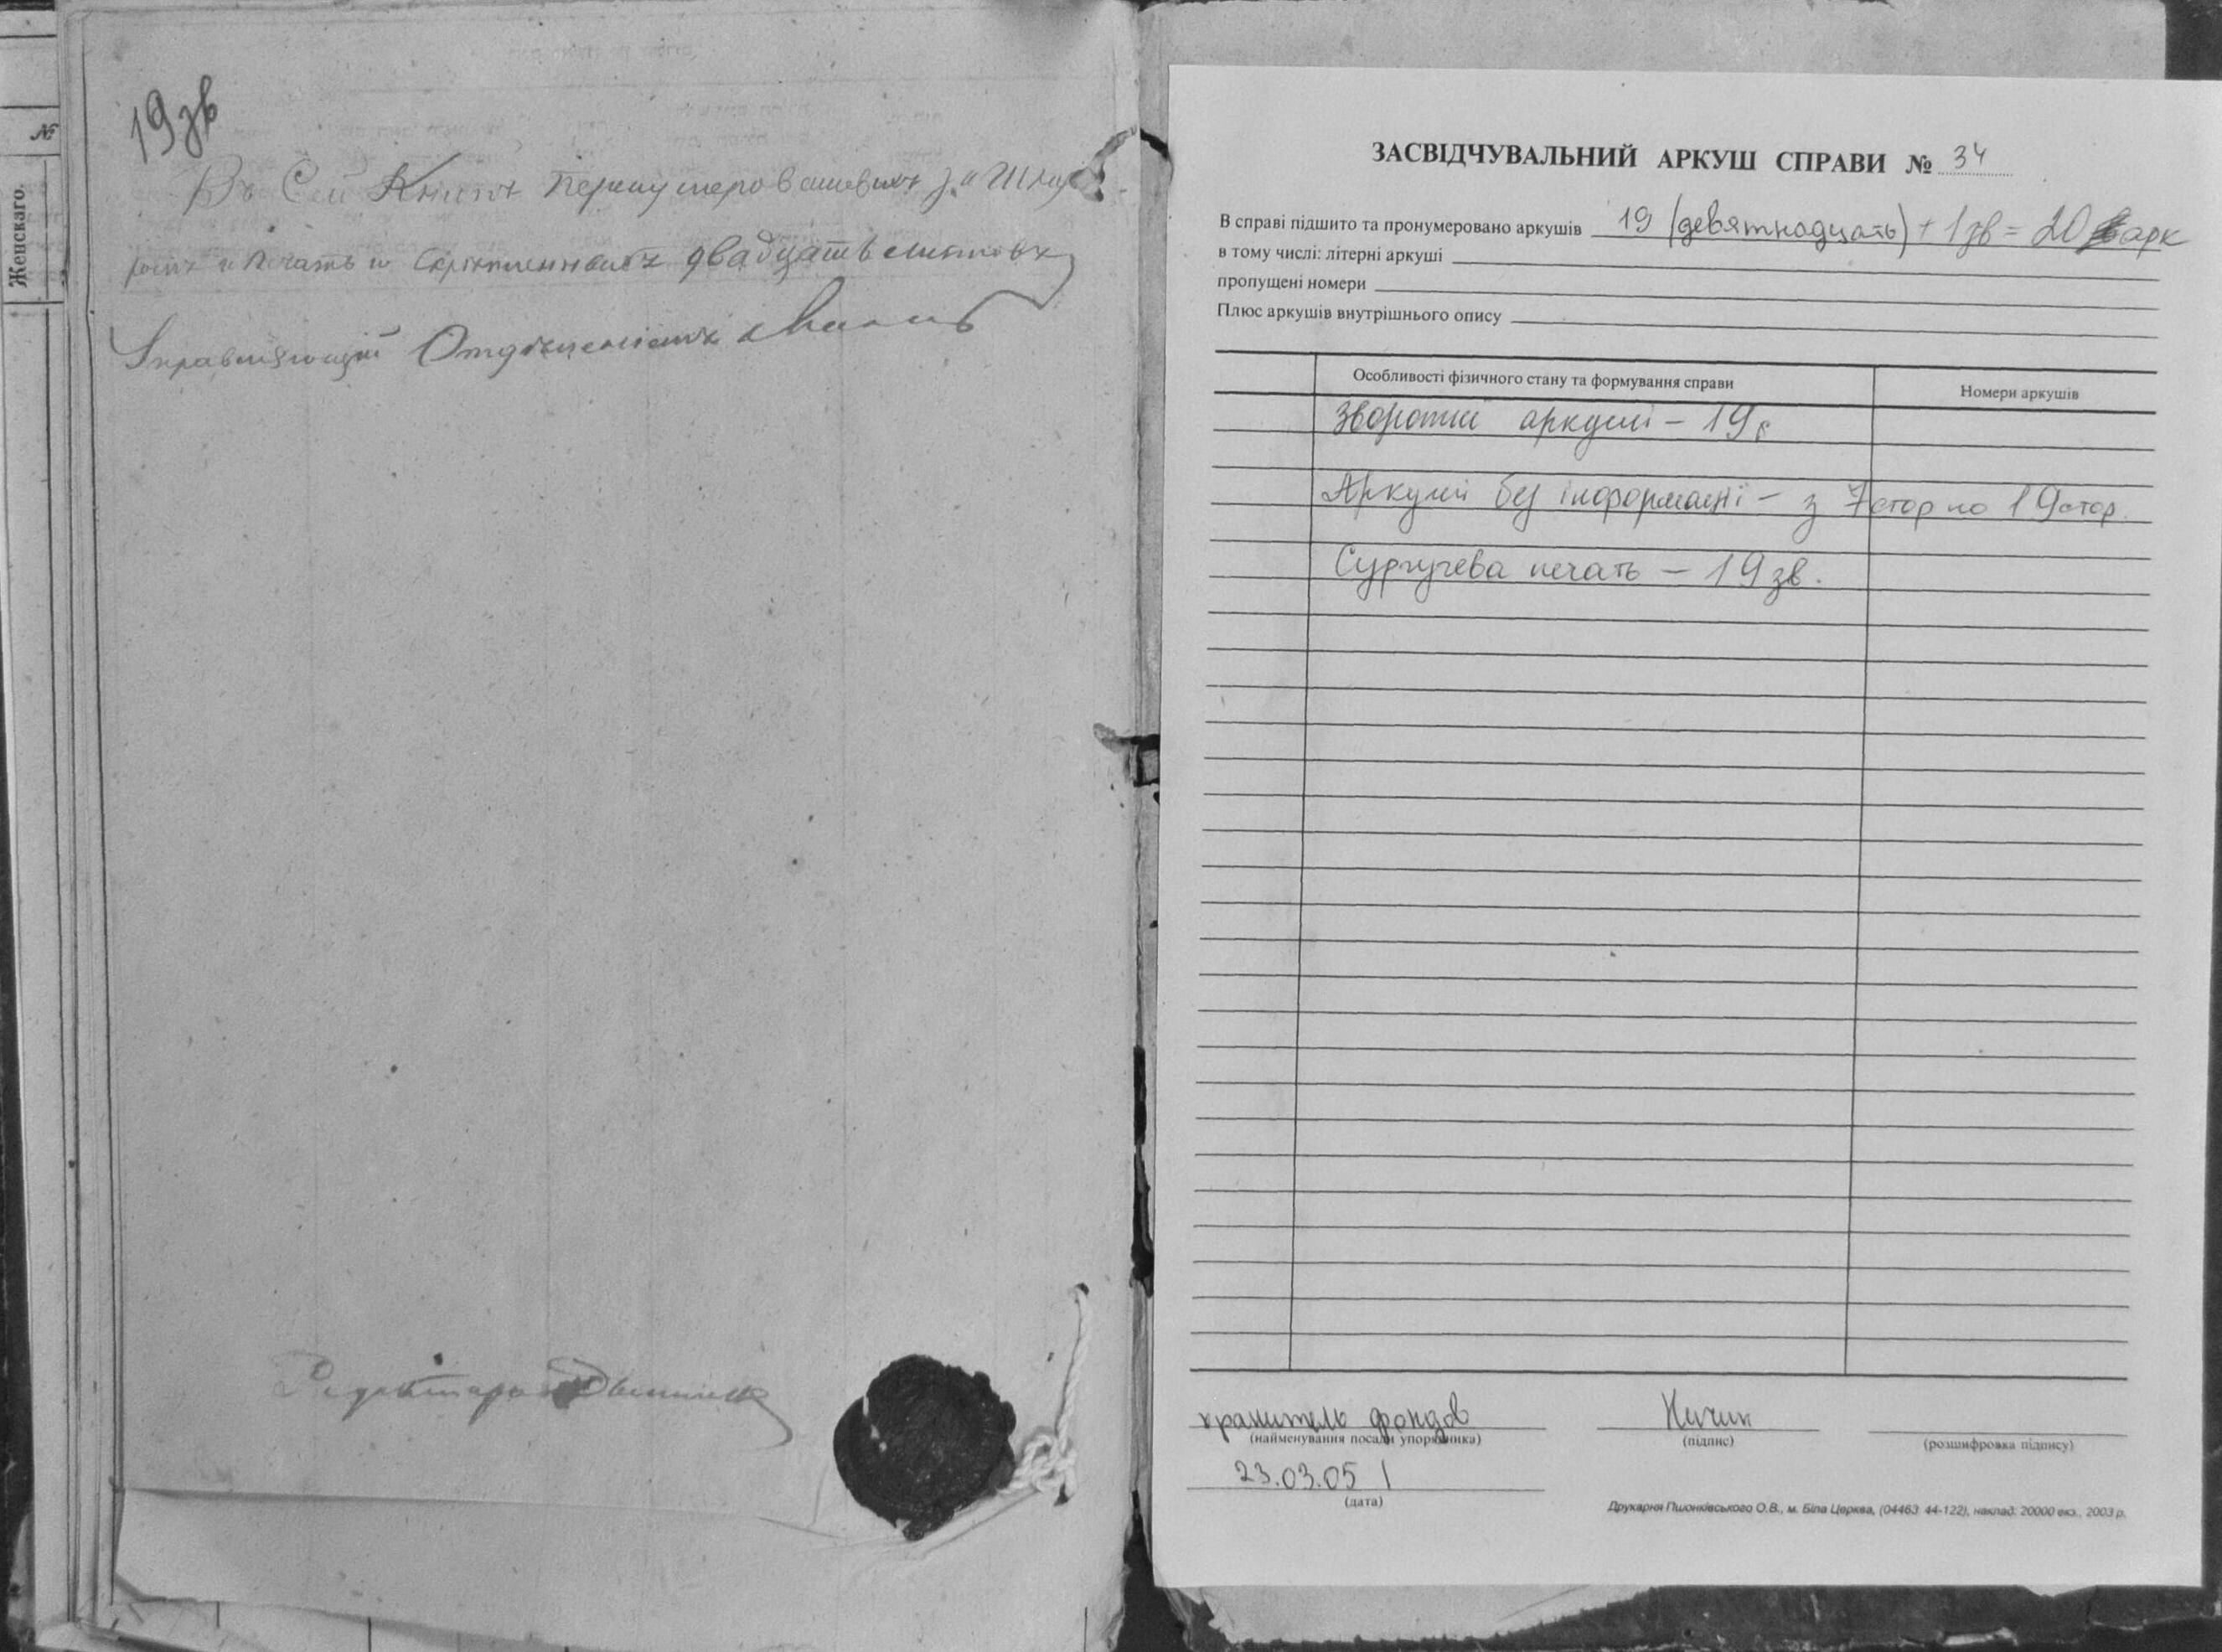 №
Женскаго.
19зв
Въ Сей Книгѣ перенумерованныхъ за Шну-
ромъ и печатью скрѣпленныхъ двадцать листовъ
Управляющій Отдѣленіемъ
ЗАСВІДЧУВАЛЬНИЙ АРКУШ СПРАВИ № 34
В справі підшито та пронумеровано аркушів 19 (девятнадцать) + 1 зв = 20 арк
в тому числі: літерні аркуші
пропущені номери
Плюс аркушів внутрішнього опису
Особливості фізичного стану та формування справи
Номери аркушів
Зворотні аркуші – 19
Аркуші без інформації – з 7 стор по 19 стор.
Сургучева печать – 19 зв.
хранитель фондов
(найменування посади упорядника)
(підпис)
(розшифровка підпису)
23.03.05
(дата)
Друкарня Пшонківського О.В., м. Біла Церква, (04463 44-122), наклад: 20000 екз., 2003 р.